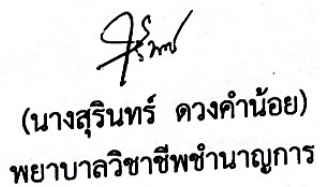 (นางสุรินทร์ ดวงคำน้อย)
พยาบาลวิชาชีพชำนาญการ